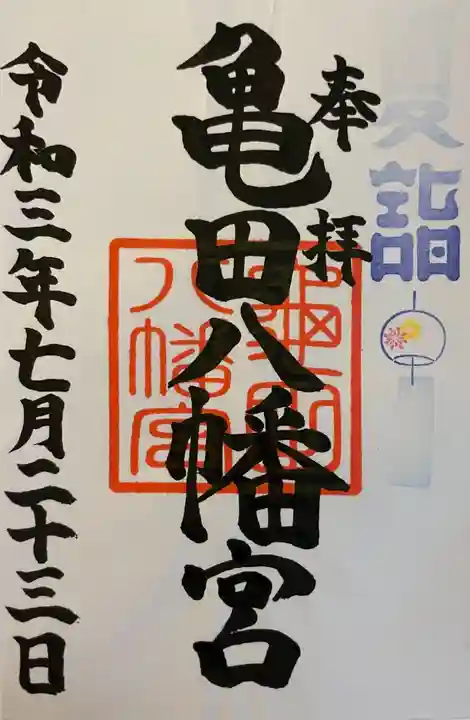 夏詣
奉拝
亀田八幡宮
亀田八幡宮
令和三年七月二十三日